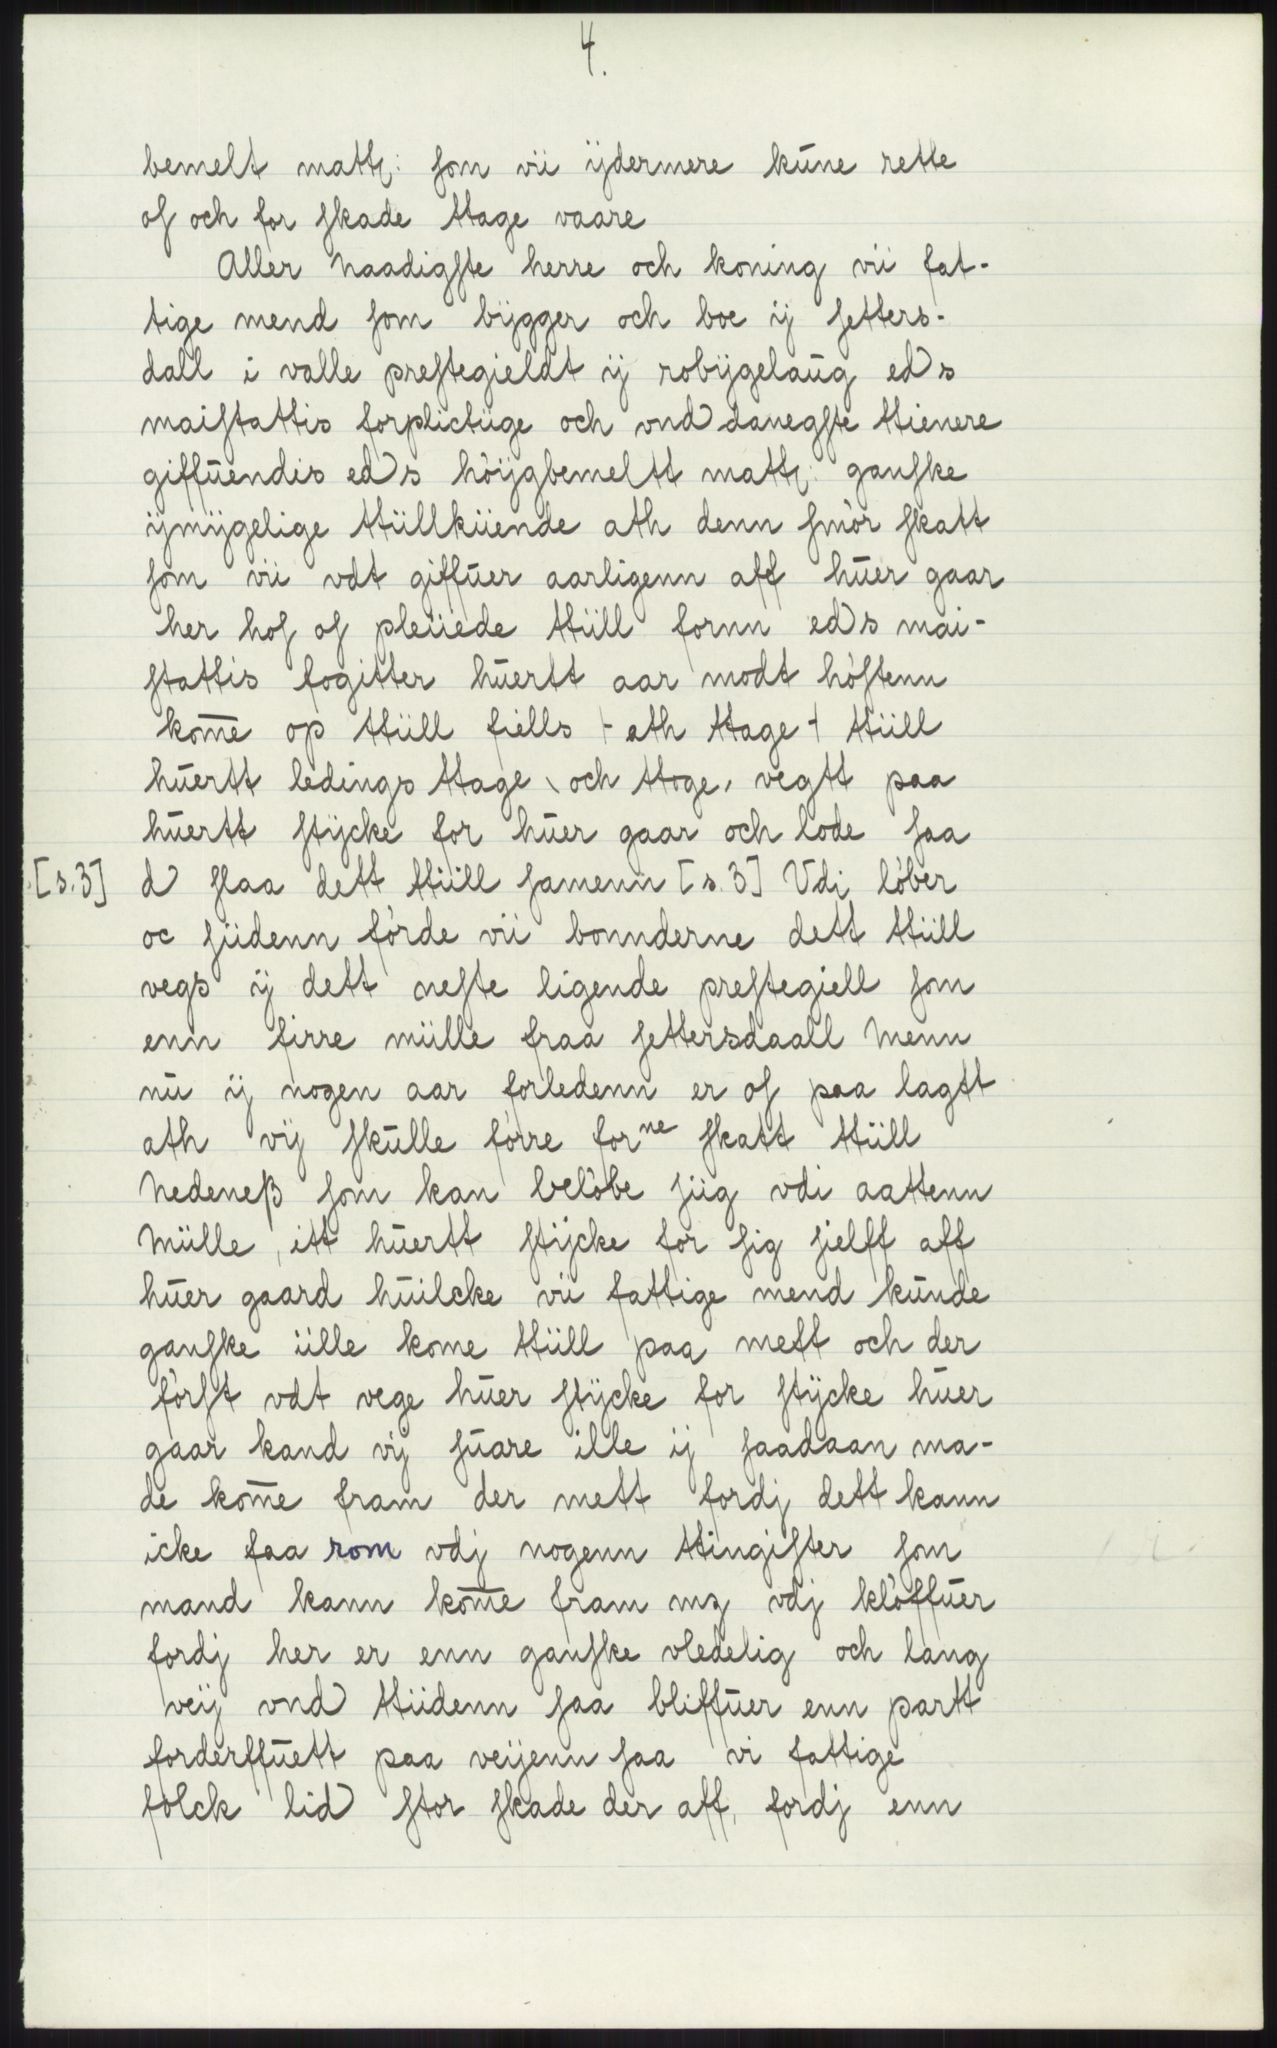 4.
bemelt matt: som vii ÿdermere kūne rette
os och for skade ttage vaare
Aller Naadigste herre och koning vii fat-
tige mend som bÿgger och boe ÿ setters-
dall i valle prestegieldt ÿ robÿgelaūg eds
maistattis forplictiige och vnddanegste ttienere
giffūendis eds höÿgbemeltt matt: ganske
ÿmÿgelige ttiillkiiende ath denn smör skatt
som vii vdt giffūer aarligenn aff hūer gaar
her hos os pleiiede ttiill fornn eds mai-
stattis fogitter hūertt aar modt höstenn
kom̄e op ttiill fiells + ath ttage + ttiill
hūertt ledings ttage \ och ttoge, vegtt paa
hūertt stÿcke for hūer gaar och lode saa
[s.3] d slaa dett ttiill samenn [s.3] Vdj löber
oc siidenn förde vii bonnderne dett ttiill
vegs ÿ dett neste ligende prestegiell som
enn firre miille fraa settersdaall Menn
nū ÿ nogen aar forledenn er os paa lagtt
ath vÿ skūlle förre forne skatt ttiill
Nedeneß som kan belöbe siig vdi aattenn
Miille, itt hūertt stÿcke for sig sielff aff
hūer gaard hūilcke vii fattige mend kūnde
ganske iille kome ttiill paa mett och der
först vdt vege hūer stÿcke for stÿcke hūer
gaar kand vÿ sūare ille ÿ saadaan ma-
de kom̄e fram der mett fordj dett kann
icke faa rom vdj nogenn ttingister som
mand kann kom̄e fram mz vdj klöffūer
fordj her er enn ganske vledelig och lang
veÿ vnd ttiidenn saa bliffūer enn partt
forderffūett paa veÿenn saa vi fattige
folck lid stor skade der aff, fordj enn